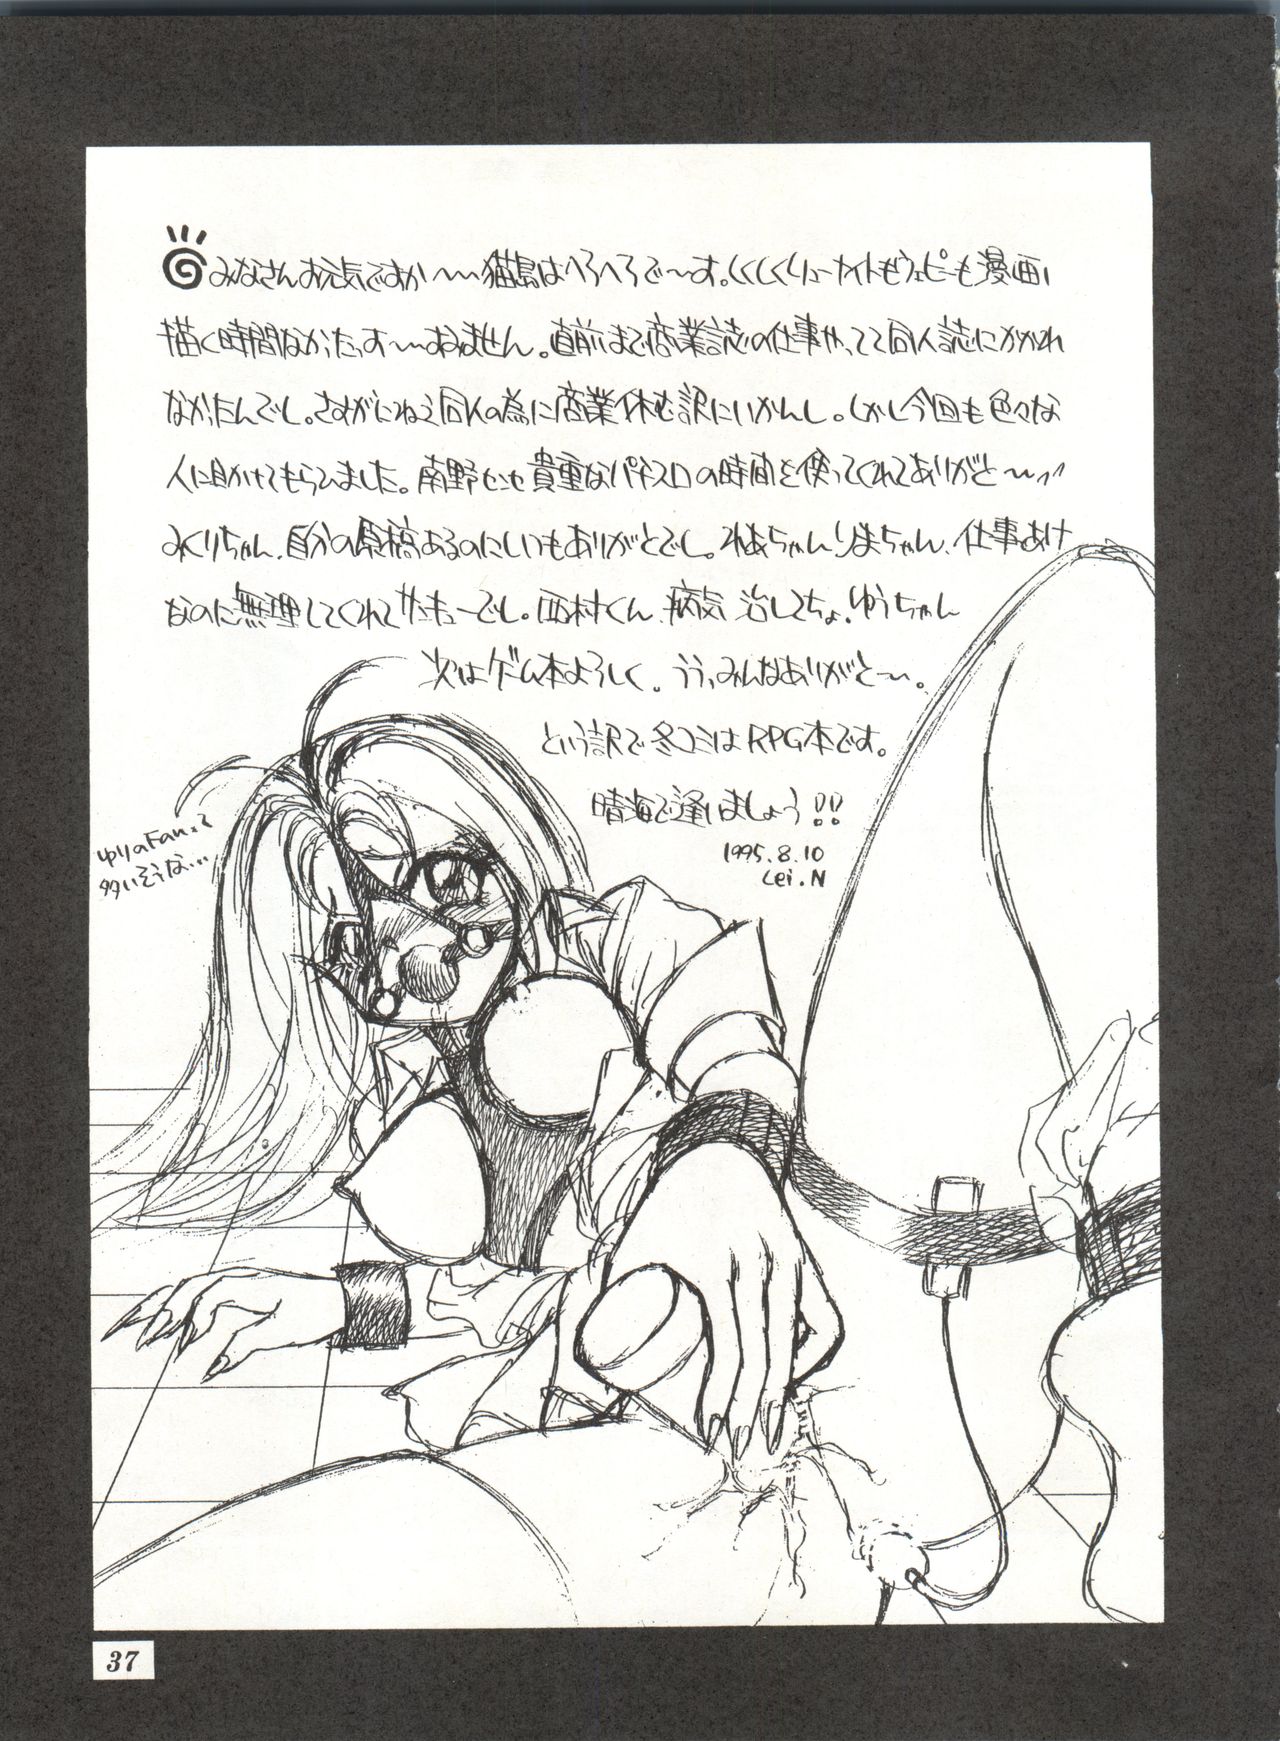 みなさんお元気ですか〜〜猫島はへろへろで〜す。しくしくリューナイトもウェピーも漫画
描く時間なかったっす〜〜すみません。直前まで商業誌の仕事やってて同人誌にかかれ
なかったんでし。さすがにねぇ同人の為に商業休む訳にいかんし。しかし今回も色々な
人に助けてもらいました。南野センセ貴重なパチスロの時間を使ってくれてありがと〜
みくりちゃん、自分の原稿あるのにいつもありがとでし。ねあちゃんりまちゃん、仕事あけ
なのに無理してくれてサンキューでし。西村くん、病気治してちょ。ゆうちゃん
次はゲーム本よろしく。ううっみんなありがと〜。
という訳で冬コミはRPG本です。
晴海で逢いましょう!!
1995.8.10
Lei.N
ゆりのFanって
多いそうな…
37